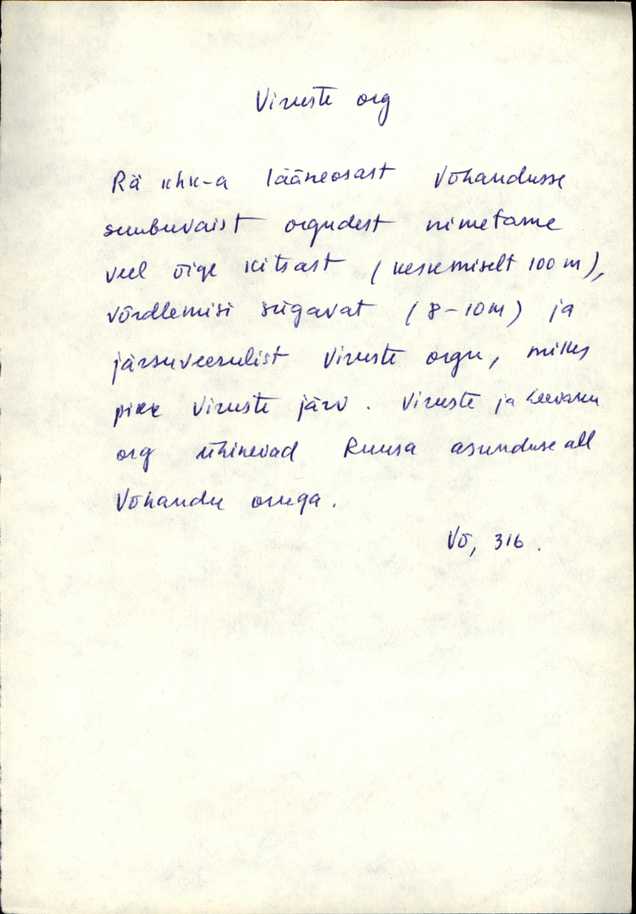 Viruste org
Rä khk-a lääneosast Võhandusse
suubuvaist orgudest nimetame
veel õige kitsast (keskmiselt 100 m),
võrdlemisi sügavat (8-10 m) ja
järsuveerulist Viruste orgu, milles
pikk Viruste järv. Viruste ja Leevaku
org ühinevad Ruusa asunduse all
Võhandu oruga.
Võ, 316.